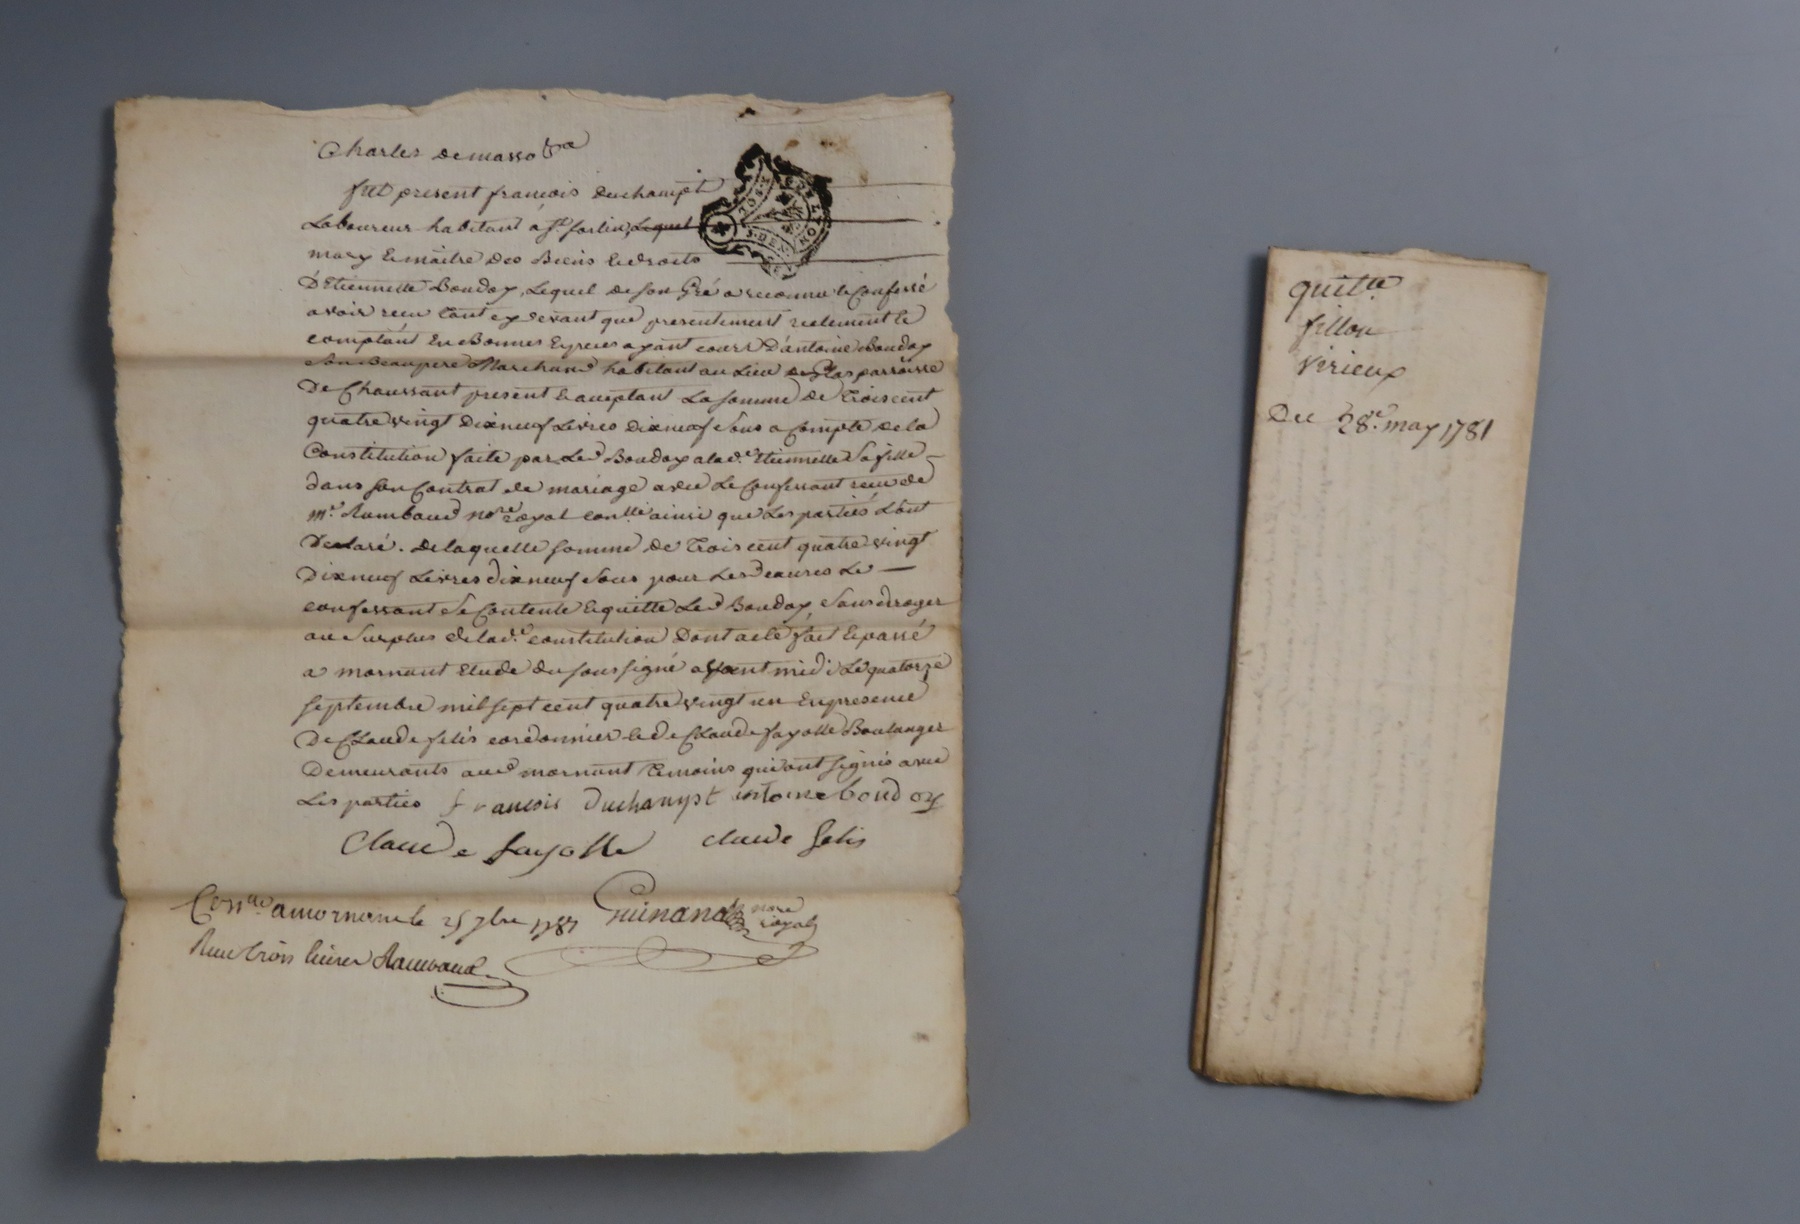 Charles demasso
fut present françois duchampt
Laboureur habitant a St sorlin, Lequel
mary & maitre des Biens & droits
D'Etiennette Bouday, Lequel de son Gré a reconnu & Confessé
avoir reçu tant cy devant que presentement reelement &
comptant En Bonnes Especes ayant cours D'antoine Bouday
son Beaupere Marchand habitant au Lieu de parroisse
De Chaussant present & acceptant La somme De Trois cent
quatre vingt Dixneuf Livres dixneuf sous a Compte de la
Constitution faite par Led Bouday a lad.e Etiennette sa fille
dans son Contrat de mariage avec Le Confessant reçu de
Me. Rambaud nore royal ainsi que Les parties L'ont
Declaré. de laquelle somme de Trois cent quatre vingt
Dixneuf Livres dixneuf sous pour Les Causes Le
confessant se Contente & quitte Led Bouday, sans deroger
au surplus de lad.e constitution Dont acte fait & passé
a mornant Etude du soussigné avant midi Le quatorze
septembre mil sept cent quatre vingt un En presence
De Claude felis cordonnier & de Claude fayolle Boulanger
Demeurants aud mornant temoins qui ont signés avec
Les parties françois Duchampt antoine boudoy
Claude fayolle claude felis
Conlle a mornant le 25 7bre 1781 Guinand nore
royal
Reçu trois livres Rambaud
quitte
fillon
Virieux
Du 28e. may 1781